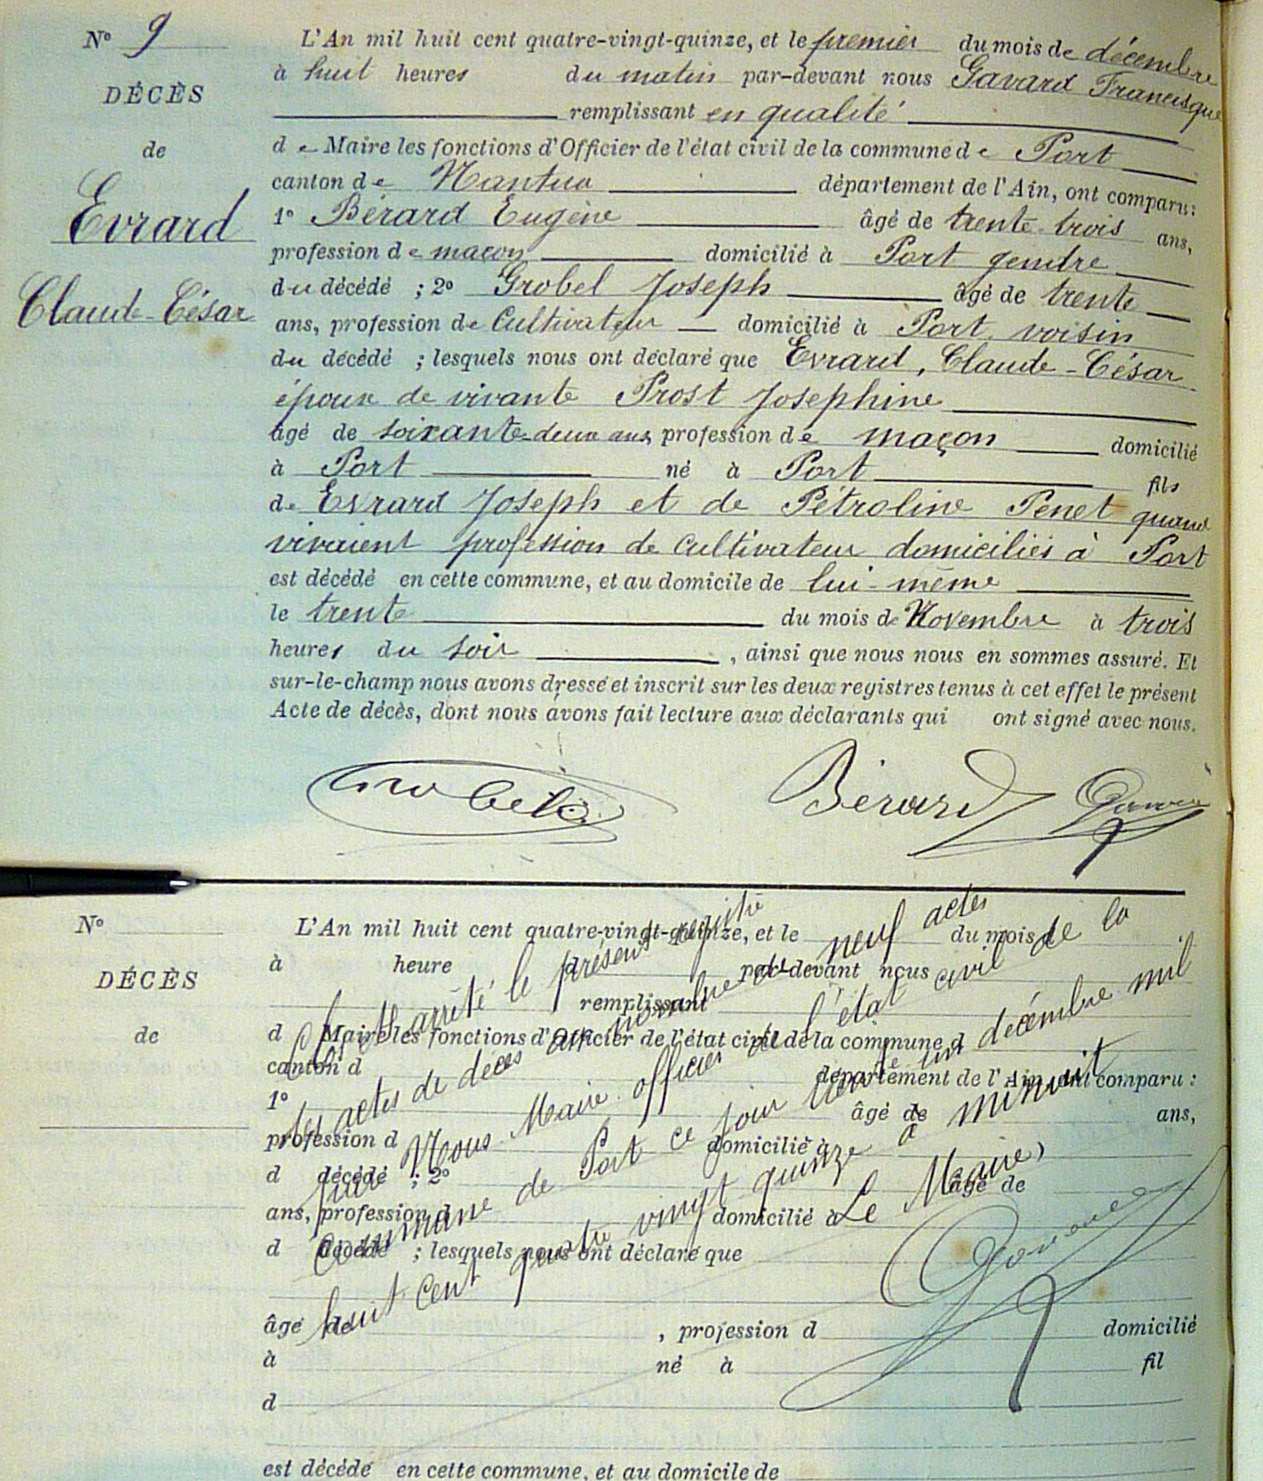 N° 9
DÉCÈS
de
Evrard
Claude-César
L'An mil huit cent quatre-vingt-quinze, et le premier du mois de décembre
à huit heures du matin par-devant nous Gavard Francisque
remplissant en qualité
de Maire les fonctions d'Officier de l'état civil de la commune de Port
canton de Nantua département de l'Ain, ont comparu:
1° Bérard Eugène âgé de trente-trois ans,
profession de maçon domicilié à Port gendre
du décédé ; 2° Grobel Joseph âgé de trente
ans, profession de Cultivateur domicilié à Port voisin
du décédé ; lesquels nous ont déclaré que Evrard, Claude-César
époux de vivante Prost Josephine
âgé de soixante-deux ans, profession de maçon domicilié
à Port né à Port fils
de Evrard Joseph et de Pétroline Penet quand
vivaient profession de cultivateur domiciliés à Port
est décédé en cette commune, et au domicile de lui-même
le trente du mois de Novembre à trois
heures du soir , ainsi que nous nous en sommes assuré. Et
sur-le-champ nous avons dressé et inscrit sur les deux registres tenus à cet effet le présent
Acte de décès, dont nous avons fait lecture aux déclarants qui ont signé avec nous.
Grobel Bérard Gavard
N°
DÉCÈS
de
L'An mil huit cent quatre-vingt-quinze, et le du mois d
à heure d par-devant nous
remplissant
d Maire les fonctions d'Officier de l'état civil de la commune d
canton d département de l'Ain, ont comparu :
1° âgé de ans,
profession d domicilié à
d décédé ; 2° âgé de
ans, profession d domicilié à
d décédé ; lesquels nous ont déclaré que
âgé de , profession d domicilié
à né à fil
d
est décédé en cette commune, et au domicile de
arrêté le présent registre
des actes de décès au nombre de neuf actes
par Nous Maire officier de l'état civil de la
commune de Port ce jour trente un décembre mil
huit cent quatre vingt quinze à minuit
Le Maire,
Gavard